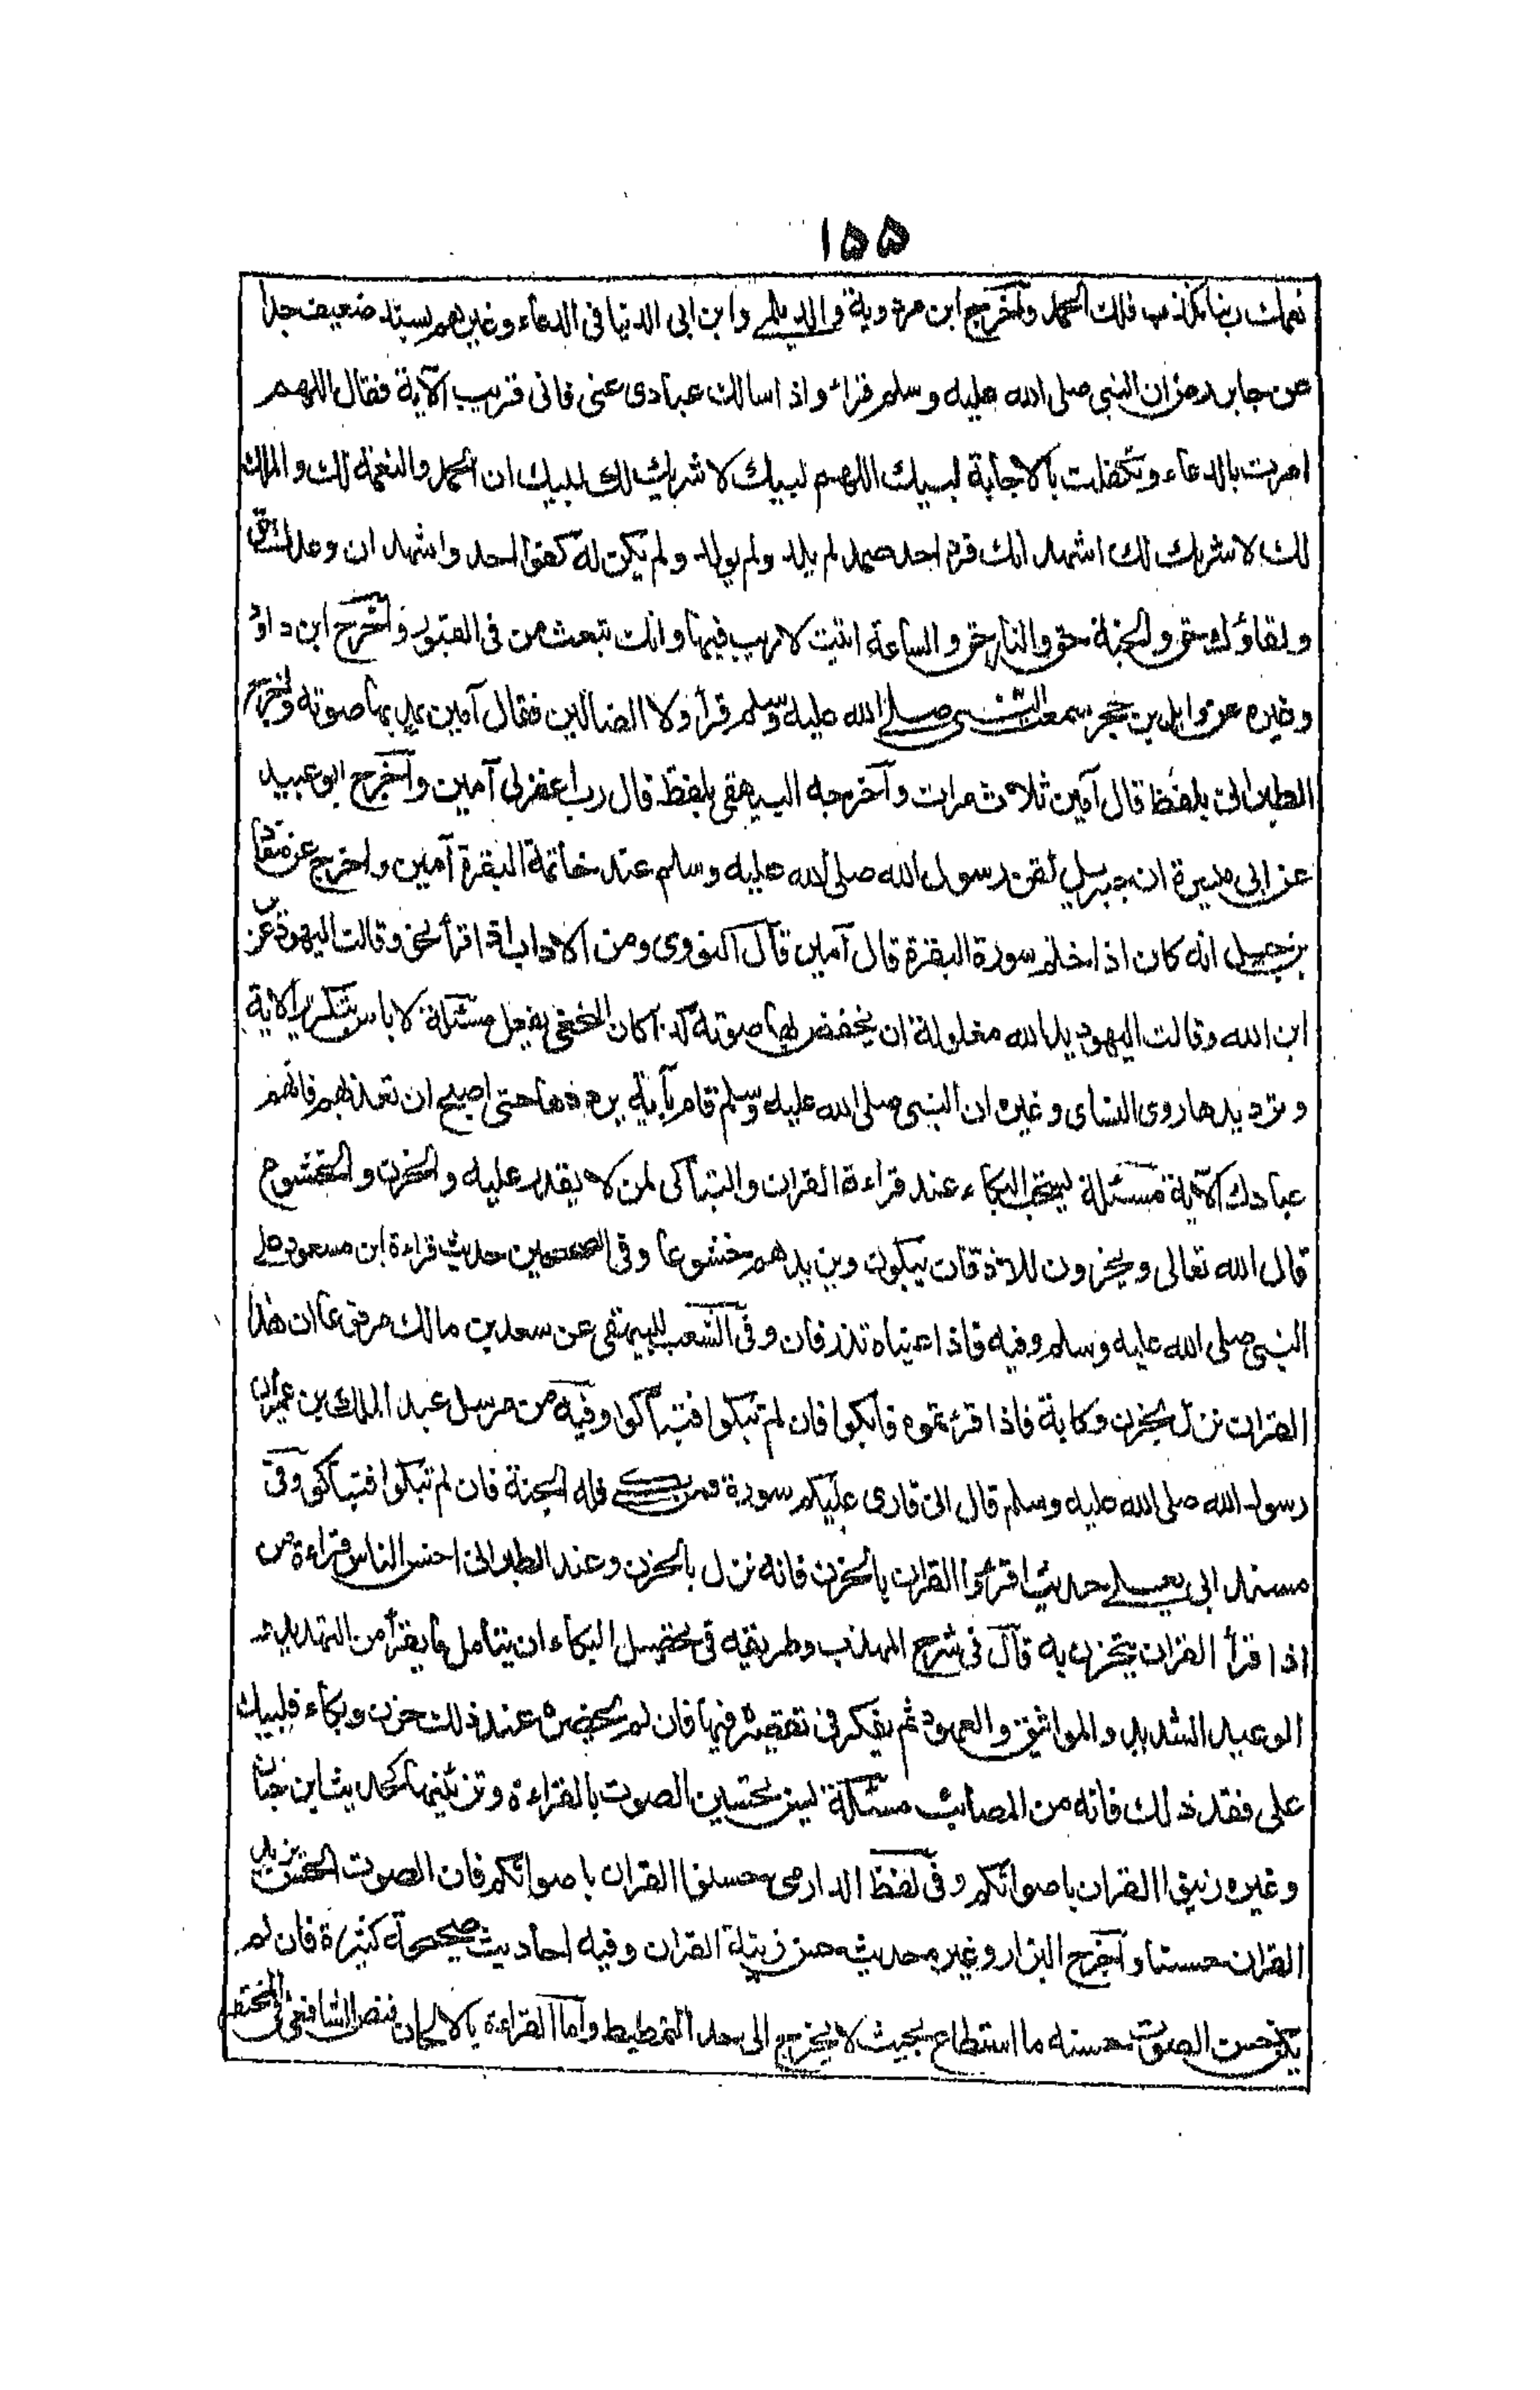 ١٥٥
نعمك ربنا نكذب فلك الحمد وآخرج ابن مردوية والديلمى وابن ابى الدنيا فى الدعاء وغيرهم بسند ضعيف جدا
عن جابر رض ان النبى صلى الله عليه وسلم قراء واذا سالك عبادى عنى فانى قريب الآية فقال اللهم
امرت بالدعاء وتكفلت بالاجابة لبيك اللهم لبيك لا شريك لك لبيك ان الحمد والنعمة لك والملك
لك لا شريك لك اشهد انك فرد احد صمد لم يلد ولم يولد ولم يكن له كفوا احد واشهد ان وعدك حق
ولقاؤك حق والجنة حق والنار حق والساعة اتية لا ريب فيها وانك تبعث من فى القبور وآخرج ابن داؤد
وغيره عن وايل بن حجر سمعت النبى صلى الله عليه وسلم قرأ ولا الضالين فقال آمين يمد بها صوته وآخرج
الطبرانى بلفظ قال آمين ثلاث مرات وآخرجه البيهقى بلفظ قال رب اغفرلى آمين وآخرج ابو عبيد
عن ابى ميسرة ان جبريل لقن رسول الله صلى الله عليه وسلم عند خاتمة البقرة آمين واخرج عن معاذ
بن جبل انه كان اذا ختم سورة البقرة قال آمين قآل النووى ومن الاداب اذا قرأ نحو وقالت اليهود عزير
ابن الله وقالت اليهود يد الله مغلولة ان يخفض بها صوته كذا كان النخعى يفعل مسئلة لا باس بتكرير الاية
وترديدها روى النساى وغيره ان النبى صلى الله عليه وسلم قام بآية يرددها حتى اصبح ان تعذبهم فانهم
عبادك الآية مسئلة يستحب البكاء عند قراءة القران والتباكى لمن لا يقدر عليه والحزن والخشوع
قال الله تعالى ويخرون للاذقان يبكون ويزيدهم خشوعا وفى الصحيحين حديث قراءة ابن مسعود على
النبى صلى الله عليه وسلم وفيه فاذا عيناه تذرفان وفى الشعب للبيهقى عن سعد بن مالك مرفوعا ان هذا
القران نزل بحزن وكابة فاذا قرئتموه فابكوا فان لم تبكوا فتباكوا وفيه من مرسل عبد الملك بن عمير ان
رسول الله صلى الله عليه وسلم قال انى قارى عليكم سورة فمن بكى فله الجنة فان لم تبكوا فتباكوا وفى
مسند ابى يعلى حديث اقرءوا القران بالحزن فانه نزل بالحزن وعند الطبرانى احسن الناس قراءة من
اذا قرأ القران يتحزن به قآل فى شرح المهذب وطريقه فى تحصيل البكاء ان يتامل ما يقرأ من التهديد
الوعيد الشديد والمواثيق والعهود ثم يفكر فى تقصيره فيها فان لم يحضره عند ذلك حزن وبكاء فليبك
على فقد ذلك فانه من المصائب مسئلة يسن تحسين الصوت بالقراءة وتزيينها لحديث ابن حبان
وغيره زينوا القران باصواتكم وفى لفظ الدارمى حسنوا القران باصواتكم فان الصوت الحسن يزيد
القران حسنا وآخرج البزار وغيره حديث حسن زينة القران وفيه احاديث صحيحة كثيرة فان لم
يكن حسن الصوت حسنه ما استطاع بحيث لا يخرج الى حد التمطيط وآما القراءة بالالحان فنص الشافعى فى المختصر